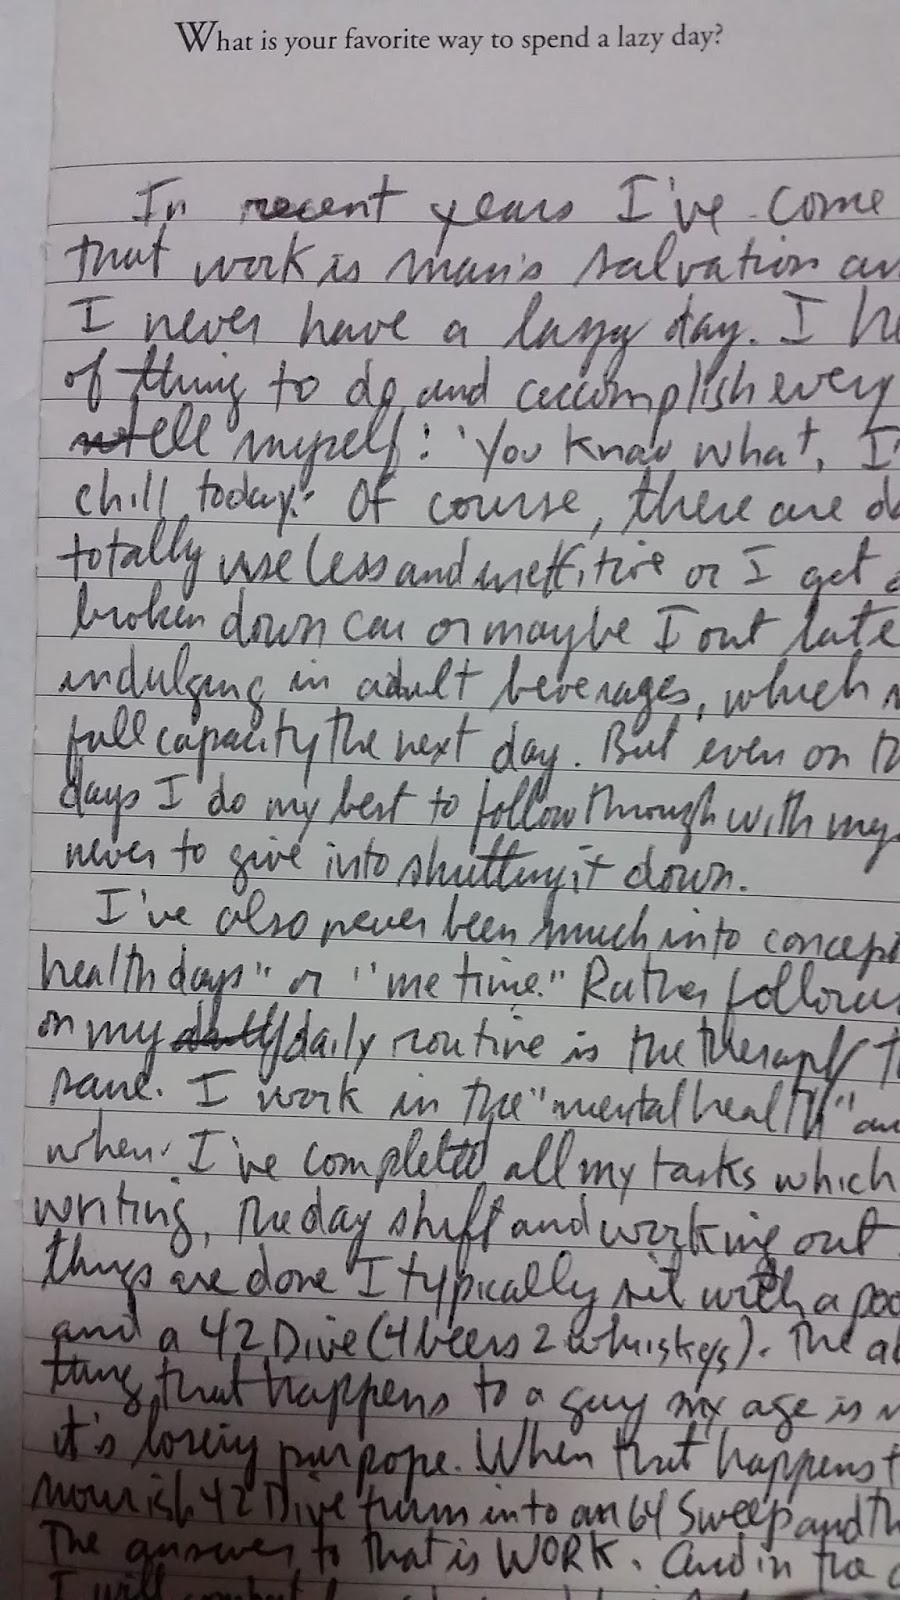 What is your favorite way to spend a lazy day?
In recent years I've come
that work is man's salvation an
I never have a lazy day. I h
of thing to do and accomplish every
tell myself: "You know what, I'
chill today." Of course, there are d
totally useless and ineffitive or I get
broken down car or maybe I out late
indulging in adult beverages, which
full capacity the next day. But even on th
days I do my best to follow through with my
never to give into shutting it down.
I've also never been much into concept
health days" or "me time." Rather follow
on my daily routine is the therapy t
sane. I work in the "mental health" a
when I've completed all my tasks which
writing, the day shift and working out
things are done I typically sit with a
and a 42 Dive (4 beers 2 whiskeys). The a
thing that happens to a guy my age is
it's losing purpope. When that happens t
nourish 42 Dive turn into an 64 Sweep and th
The answer to that is WORK. And in the
I will combat